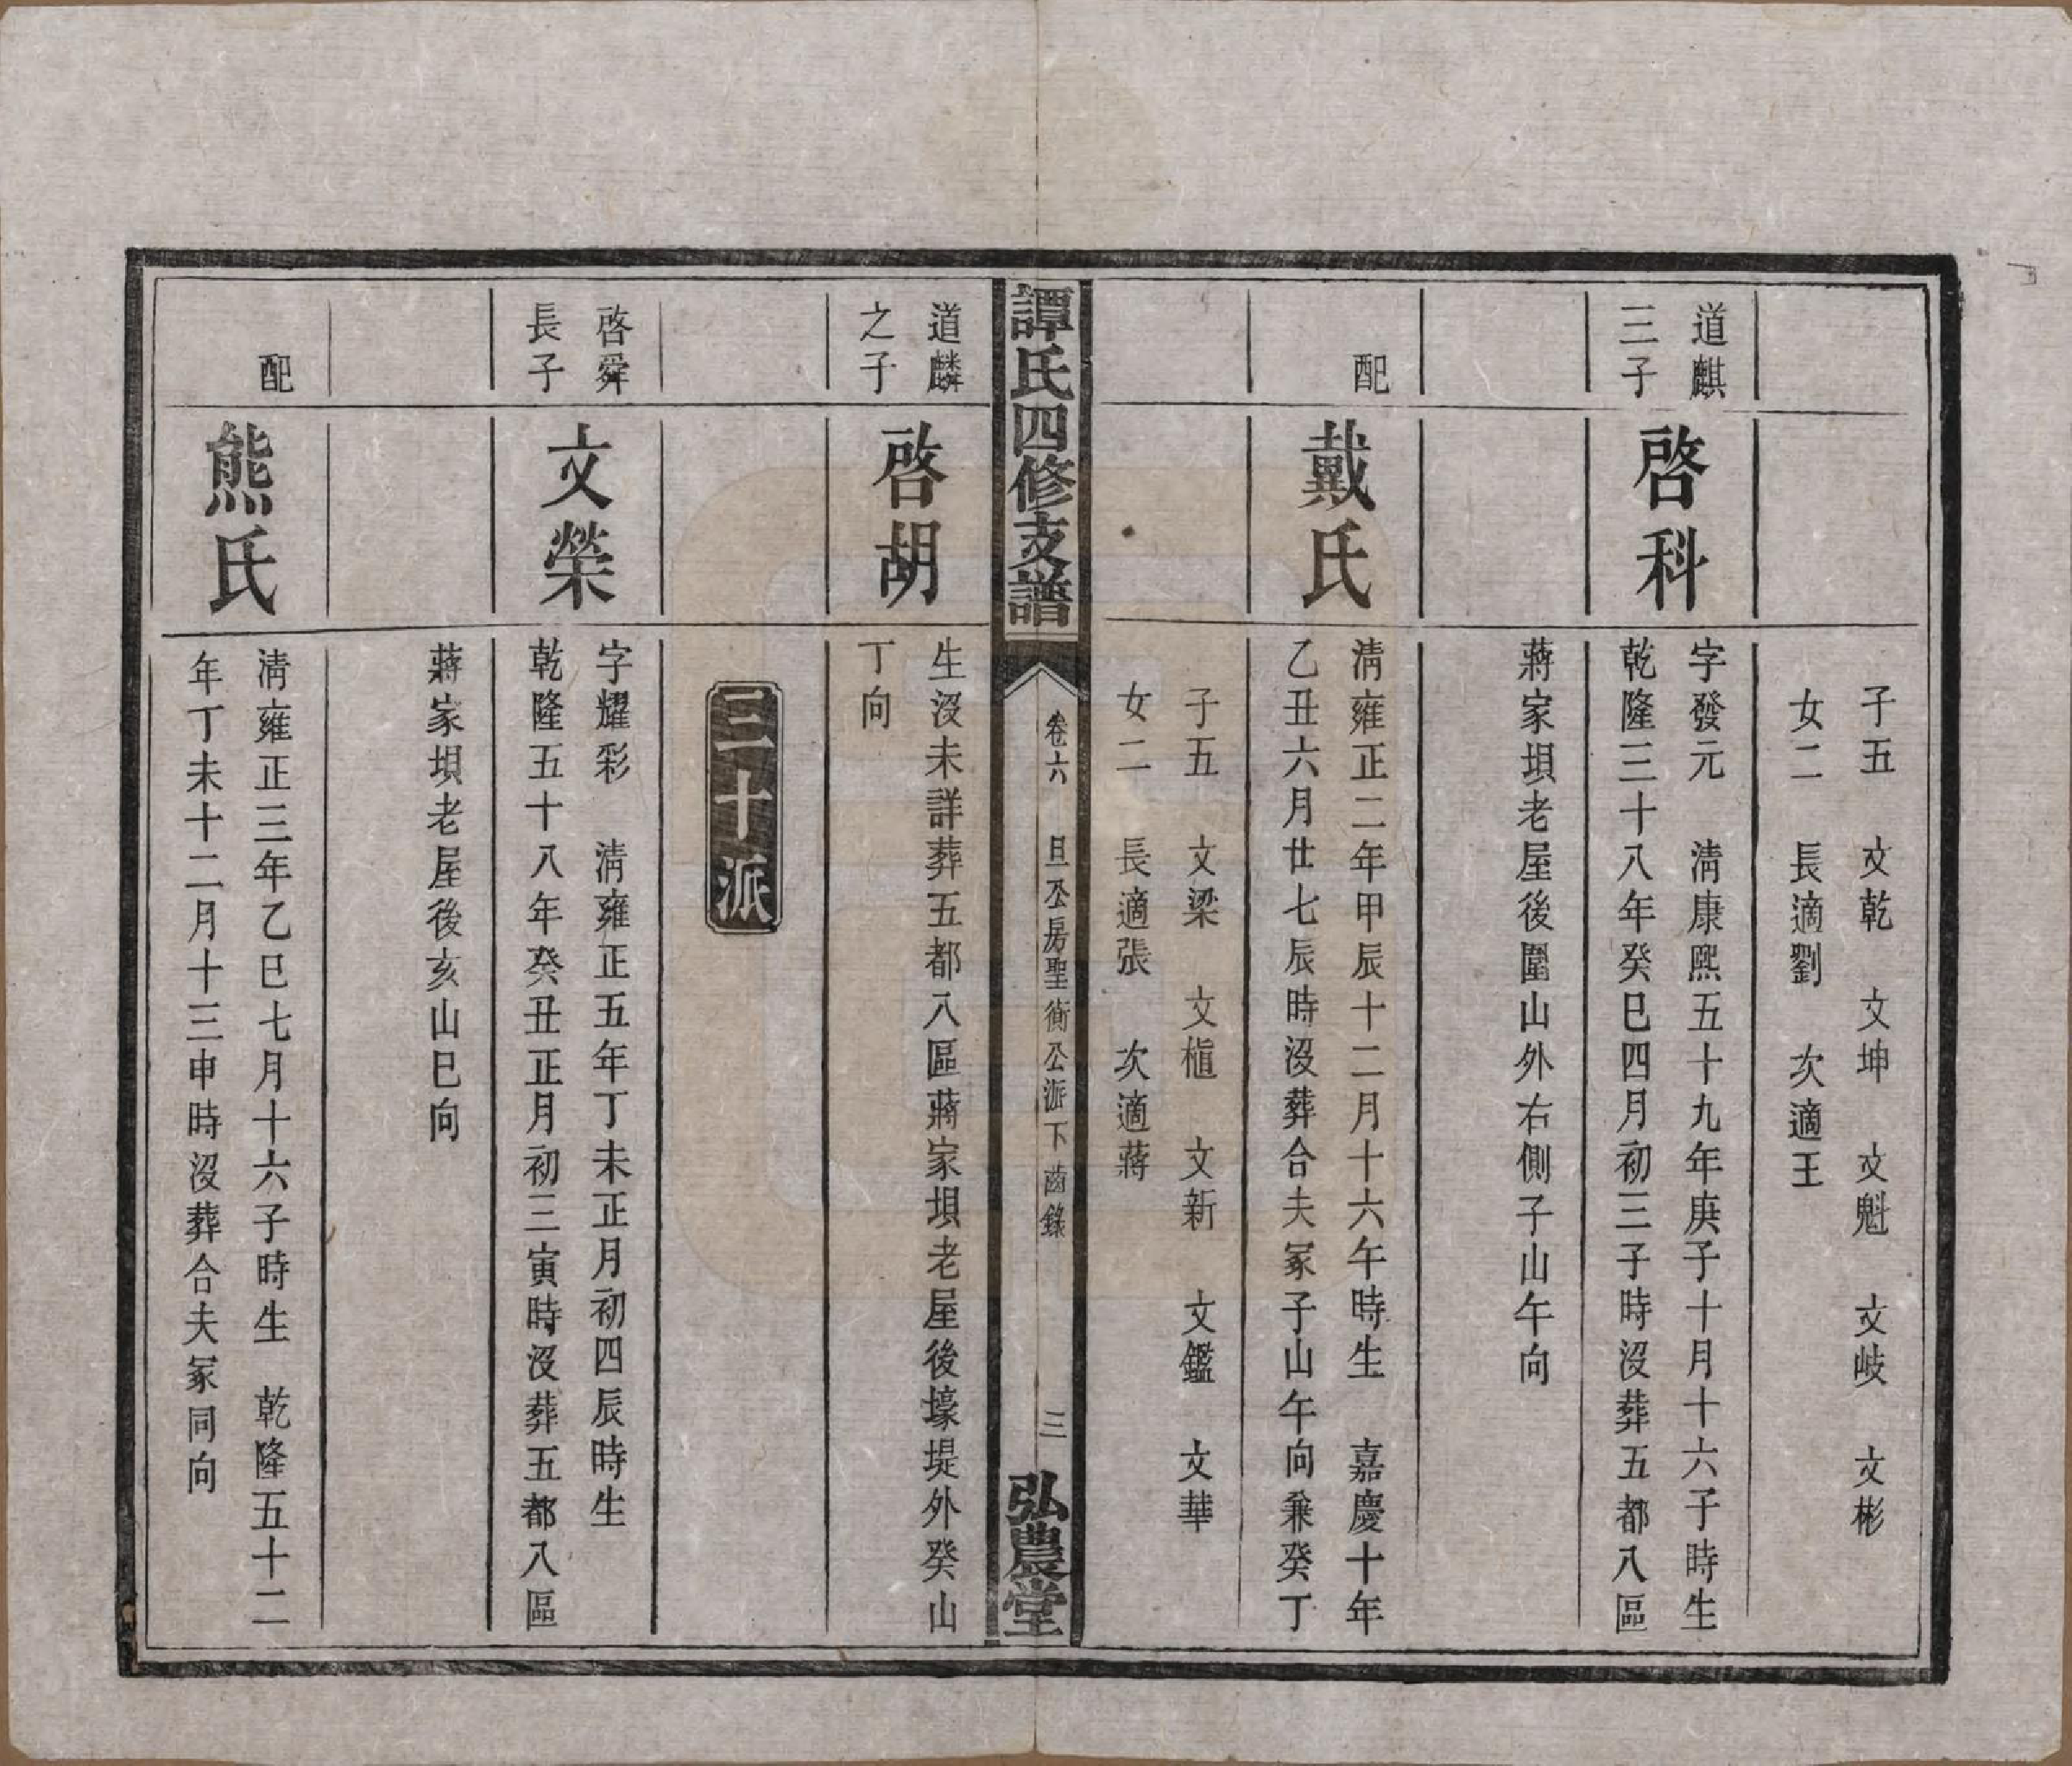 子五　文乾　文坤　文魁　文岐　文彬
女二　長適劉　次適王
道麒
三子
啓科
字發元　淸康熙五十九年庚子十月十六子時生
乾隆三十八年癸巳四月初三子時沒葬五都八區
蔣家垻老屋後圍山外右側子山午向
配
戴氏
淸雍正二年甲辰十二月十六午時生　嘉慶十年
乙丑六月廿七辰時沒葬合夫冢子山午向兼癸丁
子五　文梁　文樞　文新　文鑑　文華
女二　長適張　次適蔣
譚氏四修支譜
卷六　旦公房聖衡公派下齒錄
三
弘農堂
道麟
之子
啓胡
生沒未詳葬五都八區蔣家垻老屋後壕堤外癸山
丁向
三十派
啓舜
長子
文榮
字耀彩　淸雍正五年丁未正月初四辰時生
乾隆五十八年癸丑正月初三寅時沒葬五都八區
蔣家垻老屋後亥山巳向
配
熊氏
淸雍正三年乙巳七月十六子時生　乾隆五十二
年丁未十二月十三申時沒葬合夫冢同向